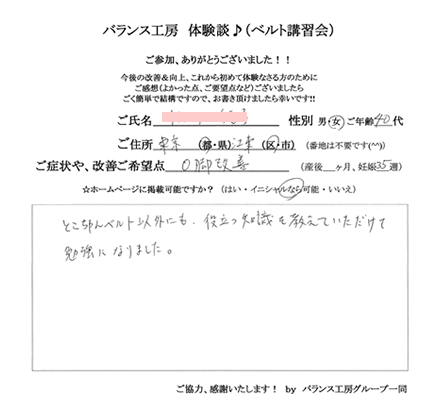 バランス工房 体験談♪(ベルト講習会)
ご参加、ありがとうございました！！
今後の改善&向上、これから初めて体験なさる方のために
ご感想(よかった点、ご要望点など)ございましたら
ごく簡単で結構ですので、お書き頂けましたら幸いです!!
ご氏名 性別 男・女 ご年齢 40 代
ご住所 東京 (都・県) 江東 (区・市) (番地は不要です(^^)
ご症状や、改善ご希望点 O脚改善 (産後 ヶ月、妊娠 35 週)
☆ホームページに掲載可能ですか？ (はい・イニシャルなら可能・いいえ)
とこちゃんベルト以外にも、役立つ知識を教えていただけて
勉強になりました。
ご協力、感謝いたします！ by バランス工房グループ一同